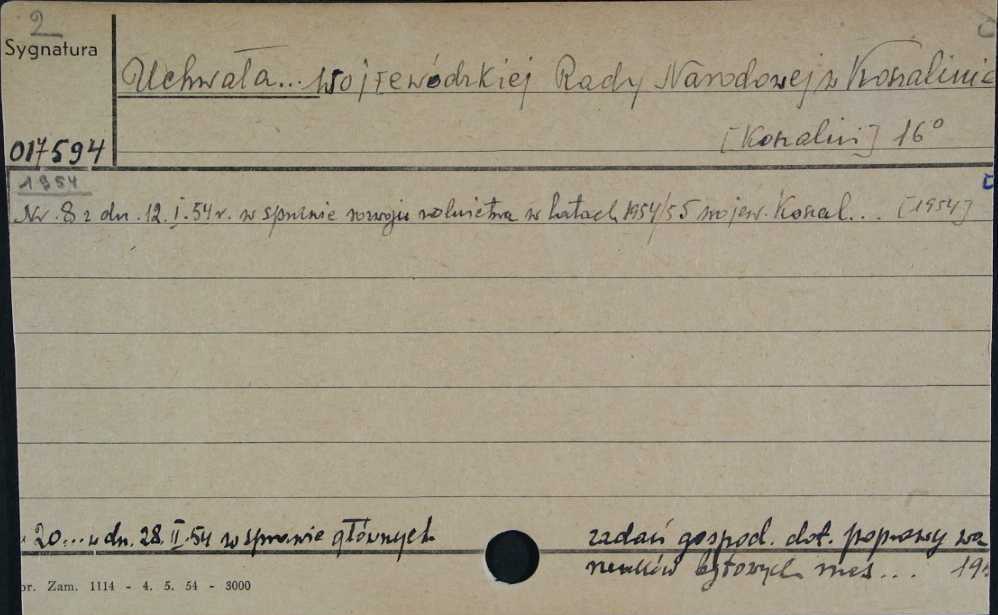 2
Sygnatura
Uchwała... Wojewódzkiej Rady Narodowej w Koszalinie
[Koszalin] 16°
017594
1954
Nr. 8 z dn. 12.I.54 r. w sprawie rozwoju rolnictwa w latach 1954/55 wojew. Koszal... [1954]
20... z dn. 28.II.54 w sprawie głównych zadań gospod. dot. poprawy wa
runków bytowych mas... 19
or. Zam. 1114 - 4. 5. 54 - 3000